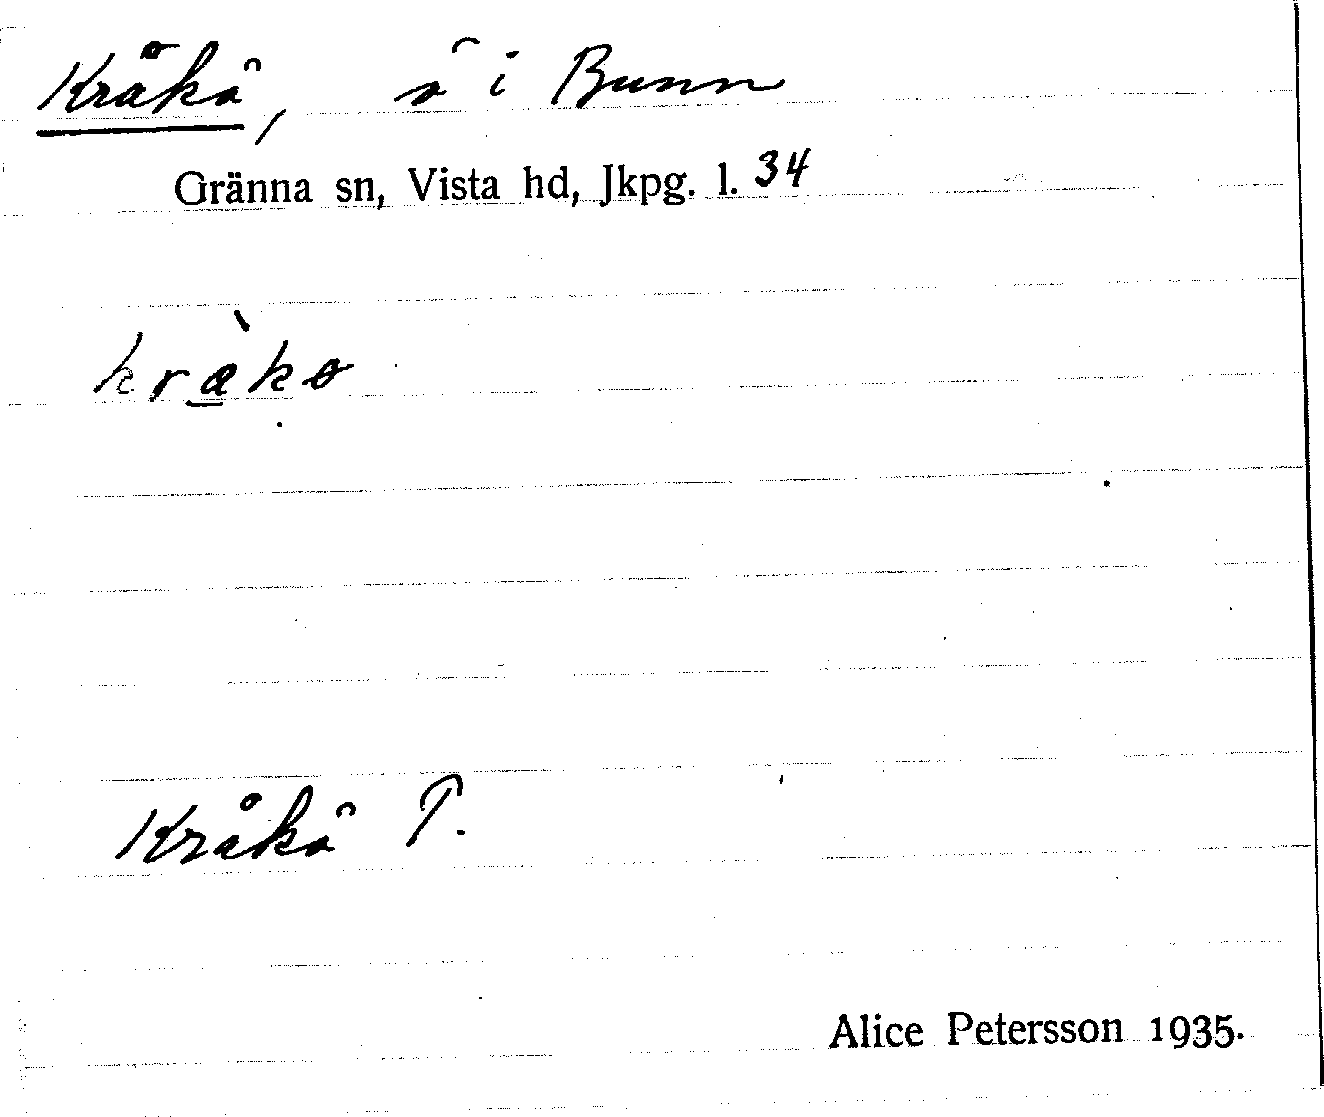 Kråkö, ö i Bunn
Gränna sn, Vista hd, Jkpg. l. 34
kràkö
Kråkö T.
Alice Petersson 1935.